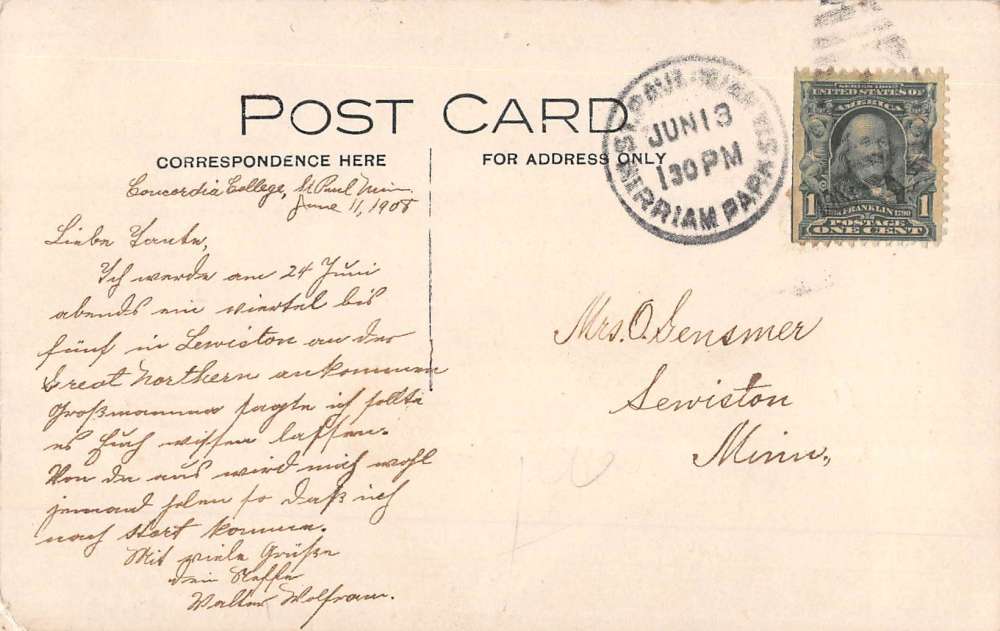 POST CARD
CORRESPONDENCE HERE
FOR ADDRESS ONLY
Concordia College, St. Paul Minn.
June 11, 1908
Liebe Tante,
Ich werde am 24 Juni
abends ein viertel bis
fünf in Lewiston an der
Great Northern ankommen
Großmamma sagte ich sollte
es Euch wissen lassen.
Von da aus wird mich wohl
jemand holen so daß ich
nach Hart komme.
Mit viele Grüße
dein Neffe
Walter Wolfram.
ST. PAUL, MINN.
JUN 13
130 PM
MIRRIAM PARK S
SERIES 1902
UNITED STATES OF
AMERICA
FRANKLIN 1790
1 1
POSTAGE
ONE CENT
Mrs. O. Gensmer
Lewiston
Minn.,